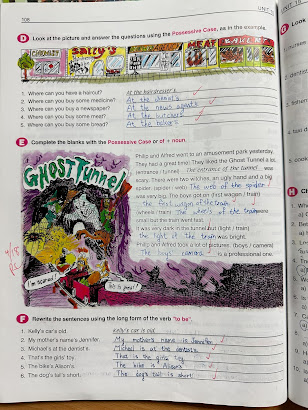 108
UNIT
D Look at the picture and answer the questions using the Possessive Case, as in the example.
CHEMIST
SALLY'S
MEAT
1. Where can you have a haircut? At the hairdresser's.
2. Where can you buy some medicine? At the chemist's.
3. Where can you buy a newspaper? At the news agent's
4. Where can you buy some meat? At the butcher's
5. Where can you buy some bread? At the baker's
E Complete the blanks with the Possessive Case or of + noun.
GHOST TUNNEL
I'm scared!
This is great!
Philip and Alfred went to an amusement park yesterday.
They had a great time! They liked the Ghost Tunnel a lot.
(entrance / tunnel) The entrance of the tunnel was
scary. There were two witches, an ugly hand and a big
spider. (spider / web) The web of the spider
was very big. The boys got on (first wagon / train)
the first wagon of the train
(wheels / train) The wheels of the train were
small but the train went fast.
It was very dark in the tunnel but (light / train)
the light of the train was bright.
Philip and Alfred took a lot of pictures. (boys / camera)
The boys' camera is a professional one.
F Rewrite the sentences using the long form of the verb "to be".
1. Kelly's car's old. Kelly's car is old.
2. My mother's name's Jennifer. My mother's name is Jennifer.
3. Michael's at the dentist's. Michael is at the dentist's.
4. That's the girls' toy. That is the girls' toy.
5. The bike's Alison's. The bike is Alison's.
6. The dog's tail's short. The dog's tail is short.
G Look
H